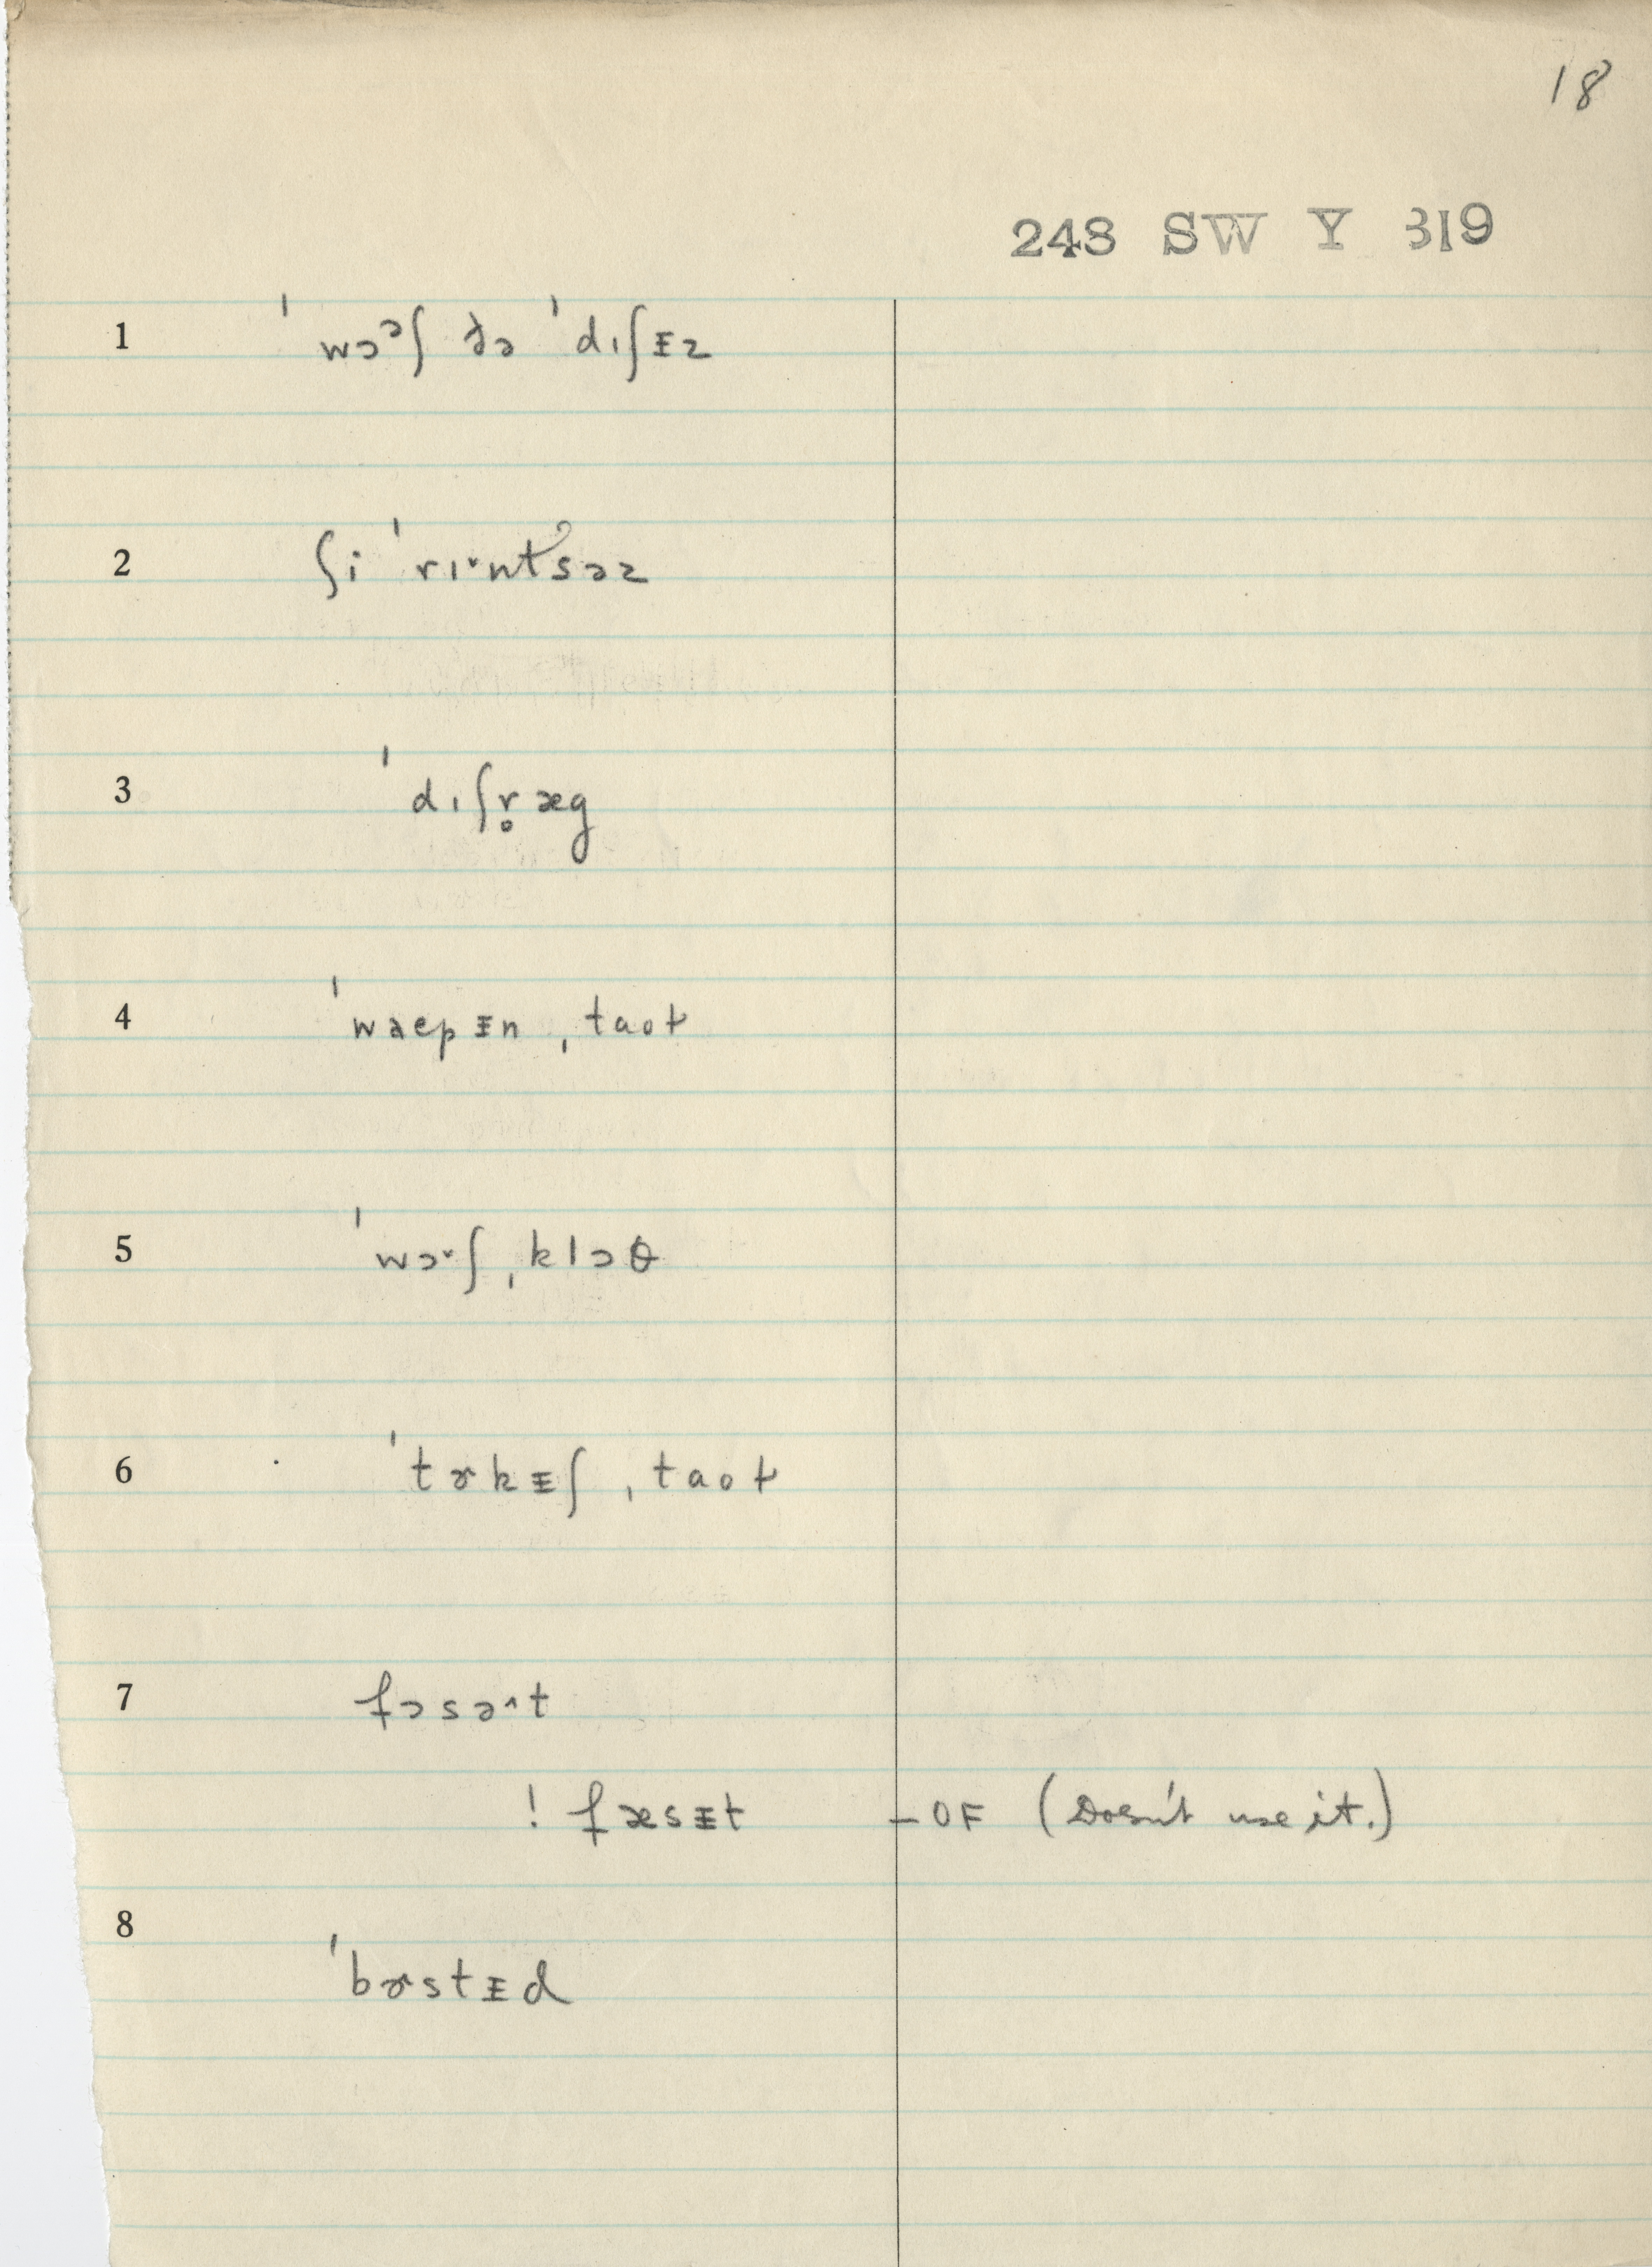 18
243 SW Y 319
1 ˈwɔᵓʃ ðə ˈdɪʃᵻz
2 ʃi ˈrɪ˞ntˀsəz
3 ˈdɪʃr̥æg
4 ˈwaepᵻn ˌtaoɫ
5 ˈwɔ˞ʃ ˌklɔθ
6 ˈtɚkᵻʃ ˌtaoɫ
7 fɔsə^t
! fæsᵻt – OF (Doesn't use it.)
8 ˈbɚstᵻd